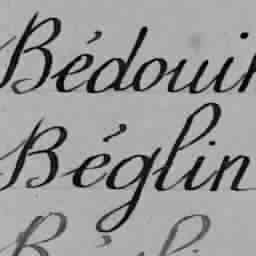 Bédouin
Béglin